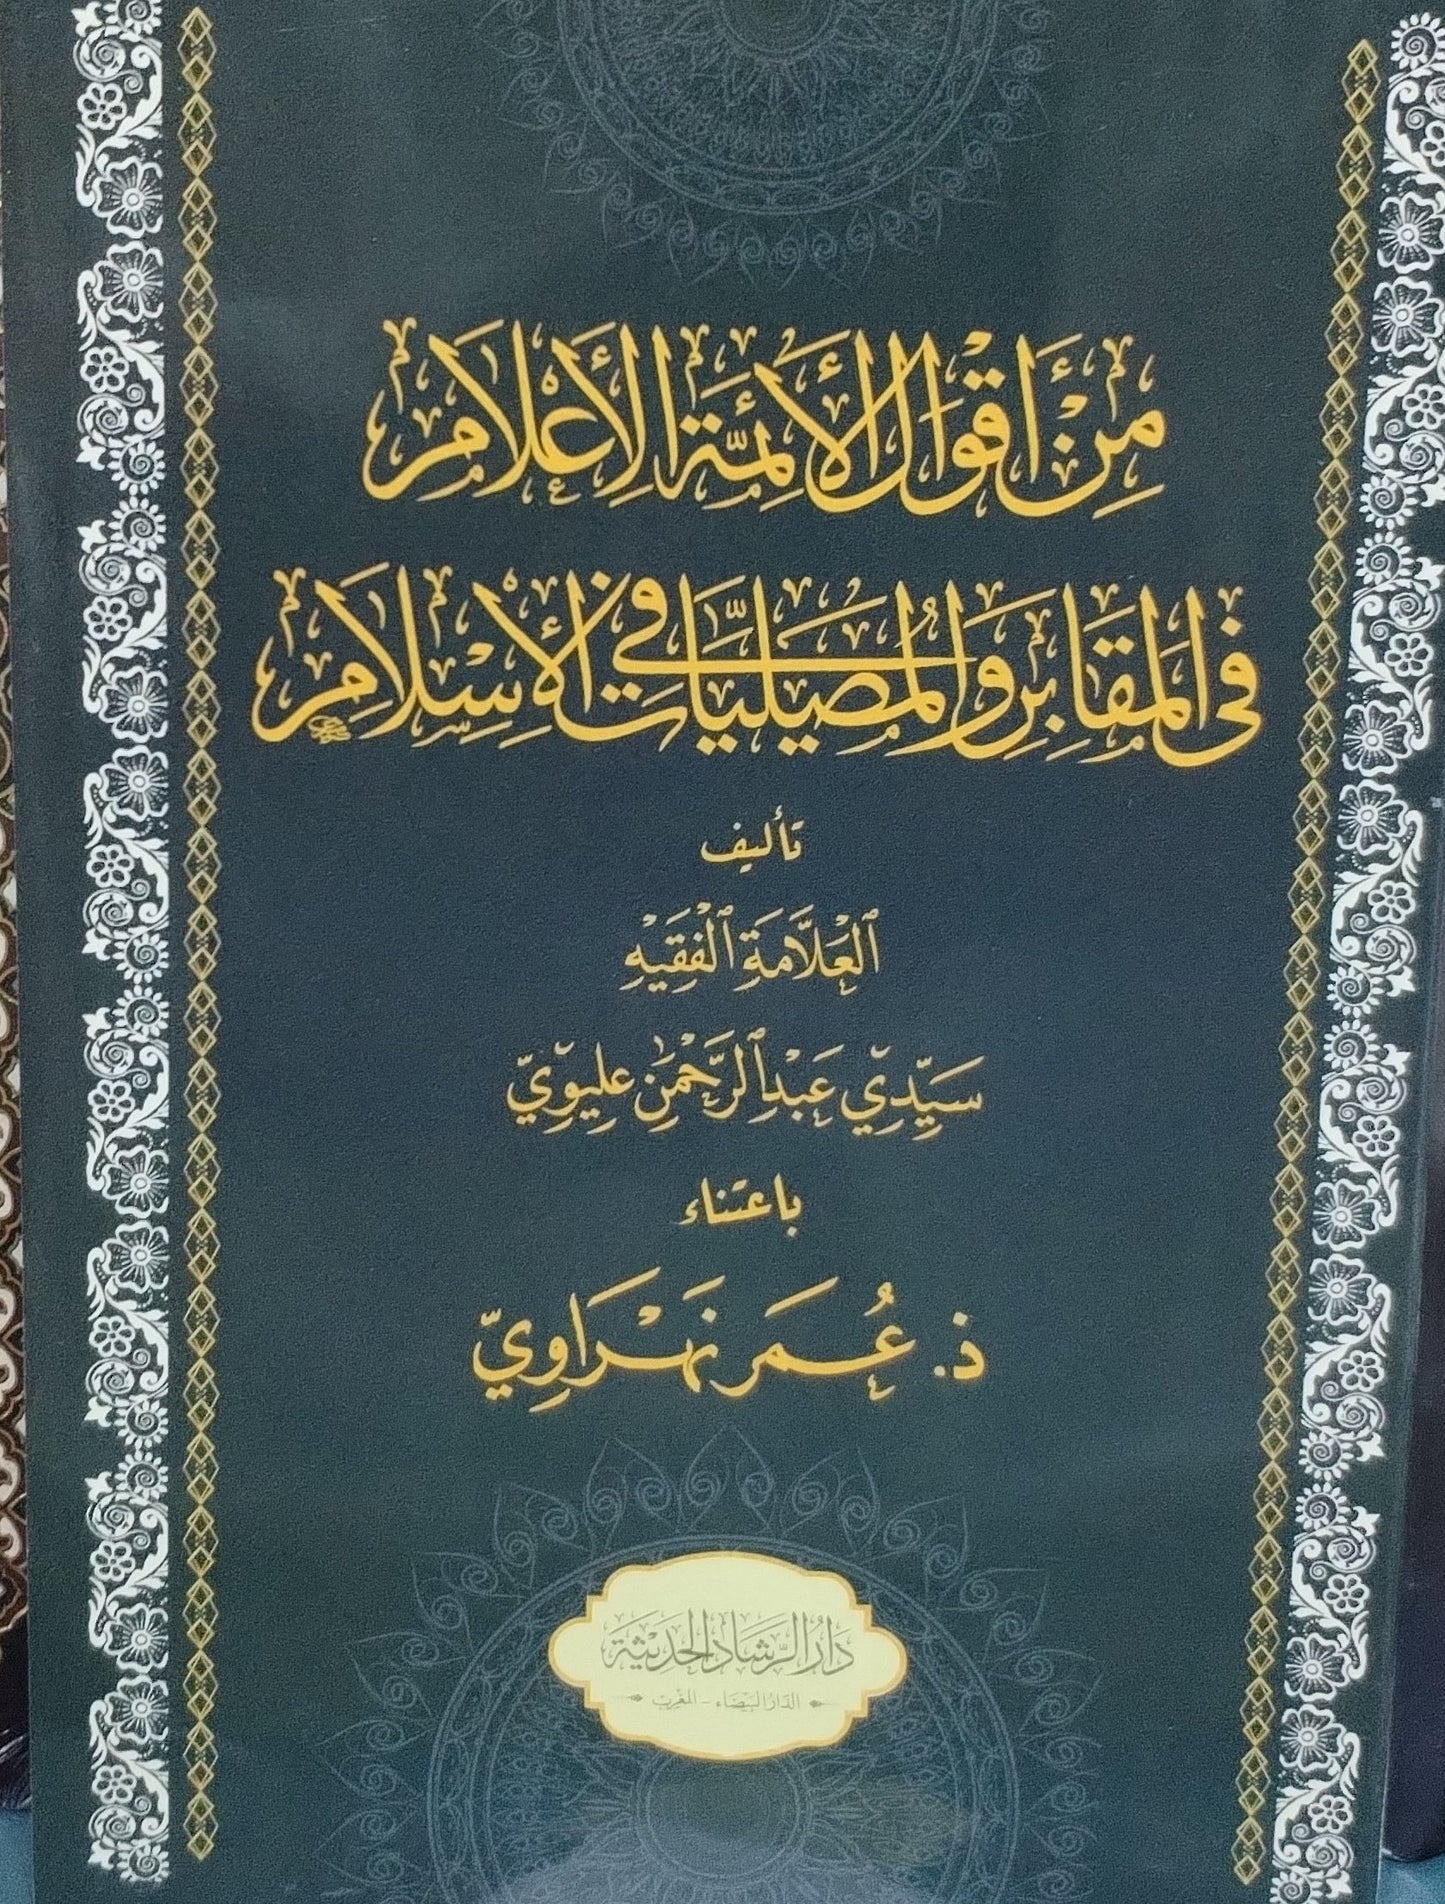 مِنْ أَقْوَالِ الْأَئِمَّةِ الْأَعْلَامِ
فِي الْمَقَابِرِ وَالْمُصَلَّيَاتِ فِي الْإِسْلَامِ
تأليف
الْعَلَّامَةِ الْفَقِيهِ
سَيِّدِي عَبْدِ الرَّحْمٰنِ عليوِيّ
باعتناء
ذ. عُمَر نَهْرَاوِيّ
دَارُ الرَّشَادِ الحَدِيثَةِ
الدَّارُ البَيْضَاء - المَغْرِب